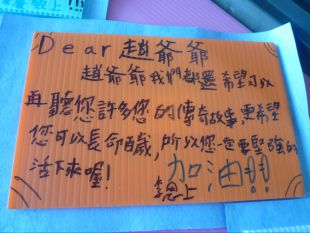 Dear趙爺爺
趙爺爺我們都還希望可以
再聽您許多您的傳奇故事,更希望
您可以長命百歲,所以您一定要堅強的
活下來喔!加油!!
李恩上